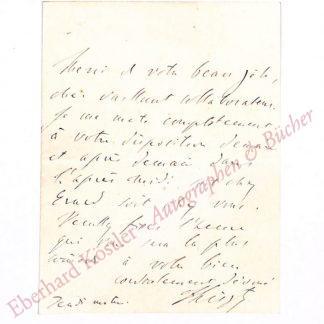 Merci de votre beau zèle,
cher vaillant collaborateur.
Je me mets complètement
à votre disposition demain
et après demain dans
l'après midi. chez
Erard soit chez vous.
Veuillez fixer l'heure
qui sera la plus
à votre bien
cordialement dévoué
FLiszt
Jeudi matin.
Eberhard Köstler - Autographen & Bücher